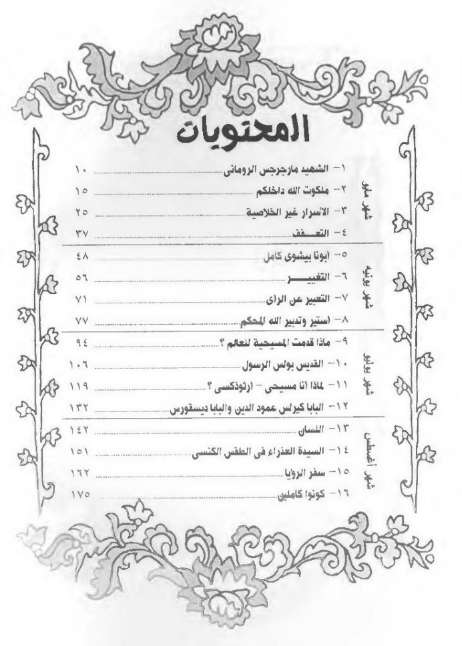 المحتويات
شهر مايو
١- الشهيد مارجرجس الرومانى ........ ١٠
٢- ملكوت الله داخلكم ........ ١٥
٣- الأسرار غير الخلاصية ........ ٢٥
٤- التعـــفف ........ ٣٧
شهر يونيه
٥- أبونا بيشوى كامل ........ ٤٨
٦- التغييـــــر ........ ٥٦
٧- التعبير عن الرأى ........ ٧١
٨- أستير وتدبير الله المحكم ........ ٧٧
شهر يوليو
٩- ماذا قدمت المسيحية للعالم ؟ ........ ٩٤
١٠- القديس بولس الرسول ........ ١٠٦
١١- لماذا أنا مسيحى - أرثوذكسى ؟ ........ ١١٩
١٢- البابا كيرلس عمود الدين والبابا ديسقورس ........ ١٣٢
شهر أغسطس
١٣- اللسان ........ ١٤٢
١٤- السيدة العذراء فى الطقس الكنسى ........ ١٥١
١٥- سفر الرؤيا ........ ١٦٢
١٦- كونوا كاملين ........ ١٧٥